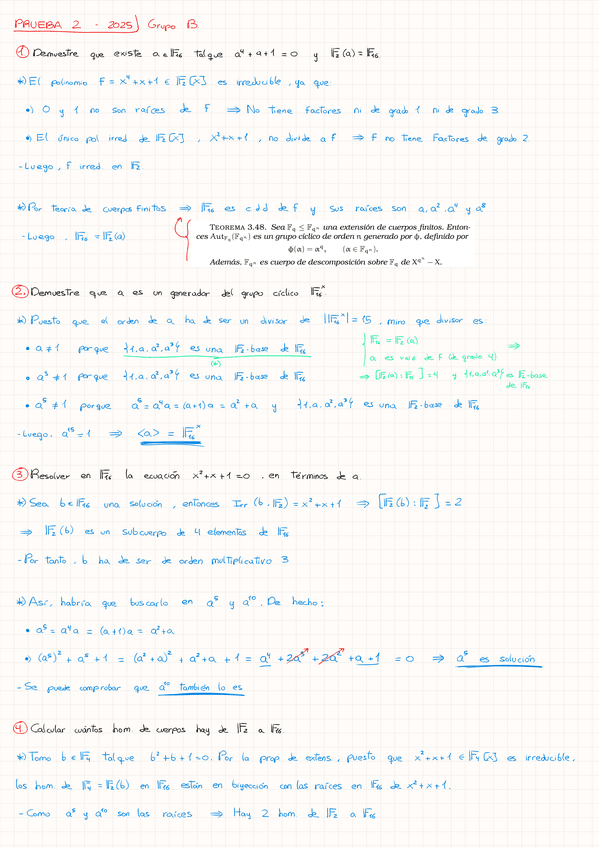 PRUEBA 2 - 2025 Grupo B.
① Demuestre que existe a ∈ 𝔽₁₆ tal que a⁴ + a + 1 = 0 y 𝔽₂(a) = 𝔽₁₆.
*) El polinomio F = x⁴ + x + 1 ∈ 𝔽₂[x] es irreducible, ya que:
•) 0 y 1 no son raíces de F ⇒ No tiene factores ni de grado 1 ni de grado 3
•) El único pol irred de 𝔽₂[x], x² + x + 1, no divide a F ⇒ F no tiene Factores de grado 2
- Luego, F irred. en 𝔽₂
*) Por teoría de cuerpos finitos ⇒ 𝔽₁₆ es c d d de F y sus raíces son a, a², a⁴ y a⁸
- Luego, 𝔽₁₆ = 𝔽₂(a)
TEOREMA 3.48. Sea 𝔽_q ≤ 𝔽_qⁿ una extensión de cuerpos finitos. Enton-
ces Aut_𝔽_q(𝔽_qⁿ) es un grupo cíclico de orden n generado por ϕ, definido por
ϕ(α) = α^q, (α ∈ 𝔽_qⁿ).
Además, 𝔽_qⁿ es cuerpo de descomposición sobre 𝔽_q de X^qⁿ − X.
② Demuestre que a es un generador del grupo cíclico 𝔽₁₆ˣ.
*) Puesto que el orden de a ha de ser un divisor de |𝔽₁₆ˣ| = 15, miro que divisor es:
• a ≠ 1 porque {1, a, a², a³} es una 𝔽₂-base de 𝔽₁₆
(*)
{ 𝔽₁₆ = 𝔽₂(a)
a es raíz de F (de grado 4) ⇒
⇒ [𝔽₂(a) : 𝔽₂] = 4 y {1, a, a², a³} es 𝔽₂-base
de 𝔽₁₆
• a³ ≠ 1 porque {1, a, a², a³} es una 𝔽₂-base de 𝔽₁₆
• a⁵ ≠ 1 porque a⁵ = a⁴a = (a+1)a = a² + a y {1, a, a², a³} es una 𝔽₂-base de 𝔽₁₆
- Luego, a¹⁵ = 1 ⇒ <a> = 𝔽₁₆ˣ
③ Resolver en 𝔽₁₆ la ecuación x² + x + 1 = 0, en términos de a.
*) Sea b ∈ 𝔽₁₆ una solución, entonces Irr(b, 𝔽₂) = x² + x + 1 ⇒ [𝔽₂(b) : 𝔽₂] = 2
⇒ 𝔽₂(b) es un subcuerpo de 4 elementos de 𝔽₁₆
- Por tanto, b ha de ser de orden multiplicativo 3
*) Así, habría que buscarlo en a⁵ y a¹⁰. De hecho:
• a⁵ = a⁴a = (a+1)a = a² + a
•) (a⁵)² + a⁵ + 1 = (a² + a)² + a² + a + 1 = a⁴ + 2a³ + 2a² + a + 1 = 0 ⇒ a⁵ es solución
- Se puede comprobar que a¹⁰ también lo es
④ Calcular cuántos hom. de cuerpos hay de 𝔽₂ a 𝔽₁₆.
*) Tomo b ∈ 𝔽₄ tal que b² + b + 1 = 0. Por la prop de extens, puesto que x² + x + 1 ∈ 𝔽₄[x] es irreducible,
los hom. de 𝔽₄ = 𝔽₂(b) en 𝔽₁₆ están en biyección con las raíces en 𝔽₁₆ de x² + x + 1.
- Como a⁵ y a¹⁰ son las raíces ⇒ Hay 2 hom. de 𝔽₂ a 𝔽₁₆